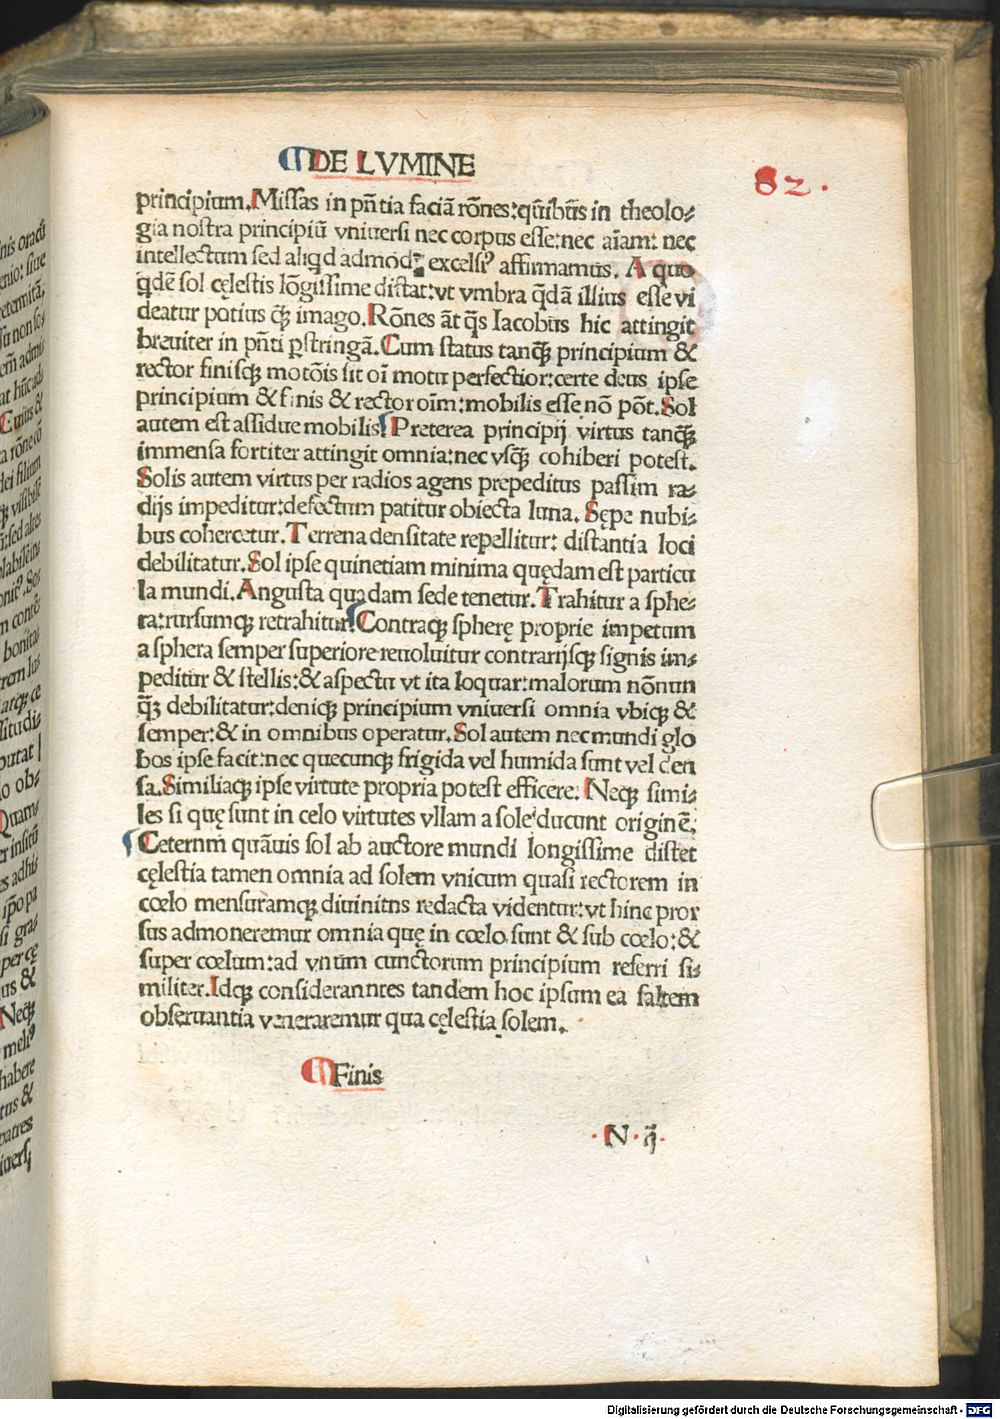 DE LVMINE
82.
principium. Missas in pñtia faciã rões: quibus in theolo⸗
gia nostra principiũ vniuersi nec corpus esse: nec aĩam: nec
intellectum sed aliqd admodũ excelsiꝰ affirmamus. A quo
qdẽ sol cęlestis lõgissime distat: vt vmbra qdã illius esse vi
deatur potius ꝙ̃ imago. Rões ãt q̃s Iacobus hic attingit
breuiter in pñti ꝑstringã. Cum status tanꝙ̃ principium &
rector finisqꝫ motõis sit oĩ motu perfectior: certe deus ipse
principium & finis & rector oĩm: mobilis esse nõ põt. Sol
autem est assidue mobilis. Preterea principij virtus tanꝙ̃
immensa fortiter attingit omnia: nec vsꝙ̃ cohiberi potest.
Solis autem virtus per radios agens prepeditus passim ra⸗
dijs impeditur: defectum patitur obiecta luna. Sępe nubi⸗
bus cohercetur. Terrena densitate repellitur: distantia loci
debilitatur. Sol ipse quinetiam minima quędam est particu
la mundi. Angusta quadam sede tenetur. Trahitur a sphe⸗
ra: rursumqꝫ retrahitur. Contraqꝫ spherę proprie impetum
a sphera semper superiore reuoluitur contrarijsqꝫ signis im⸗
peditur & stellis: & aspectu vt ita loquar: malorum nõnun
ꝙ̃ debilitatur: deniqꝫ principium vniuersi omnia vbiqꝫ &
semper: & in omnibus operatur. Sol autem nec mundi glo
bos ipse facit: nec quecunqꝫ frigida vel humida sunt vel den
sa. Similiaqꝫ ipse virtute propria potest efficere. Neqꝫ simi⸗
les si quę sunt in celo virtutes vllam a sole ducunt originẽ.
Ceternm quãuis sol ab auctore mundi longissime distet
cęlestia tamen omnia ad solem vnicum quasi rectorem in
cœlo mensuramqꝫ diuinitns redacta videntur: vt hinc pror
sus admoneremur omnia quę in cœlo sunt & sub cœlo: &
super cœlum: ad vnum cunctorum principium referri si⸗
militer. Idqꝫ consideranntes tandem hoc ipsum ea saltem
obseruantia veneraremur qua cęlestia solem.
Finis
N ij
Digitalisierung gefördert durch die Deutsche Forschungsgemeinschaft - DFG